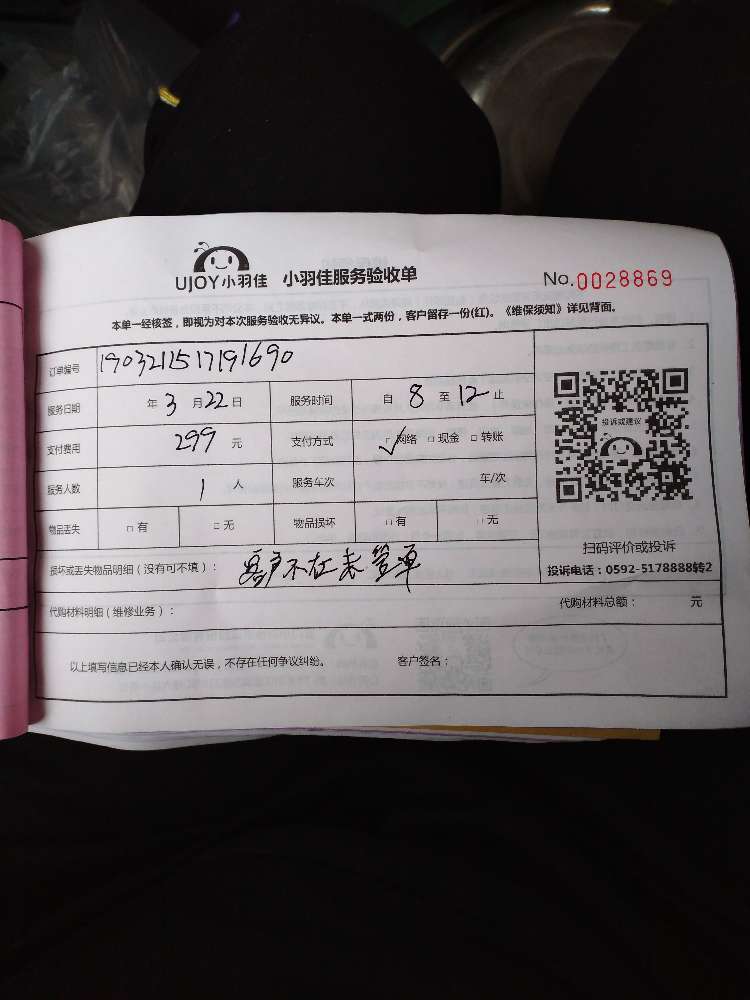 UJOY小羽佳 小羽佳服务验收单 No.0028869
本单一经核签，即视为对本次服务验收无异议。本单一式两份，客户留存一份(红)。《维保须知》详见背面。
订单编号 1903211517191690
服务日期 年 3 月 22 日 服务时间 自 8 至 12 止
投诉或建议
支付费用 299 元 支付方式 ✓网络 □现金 □转账
服务人数 1 人 服务车次 车/次
物品丢失 □有 □无 物品损坏 □有 □无
扫码评价或投诉
投诉电话：0592-5178888转2
损坏或丢失物品明细（没有可不填）： 客户不在未签单
代购材料明细（维修业务）： 代购材料总额： 元
以上填写信息已经本人确认无误，不存在任何争议纠纷。 客户签名：